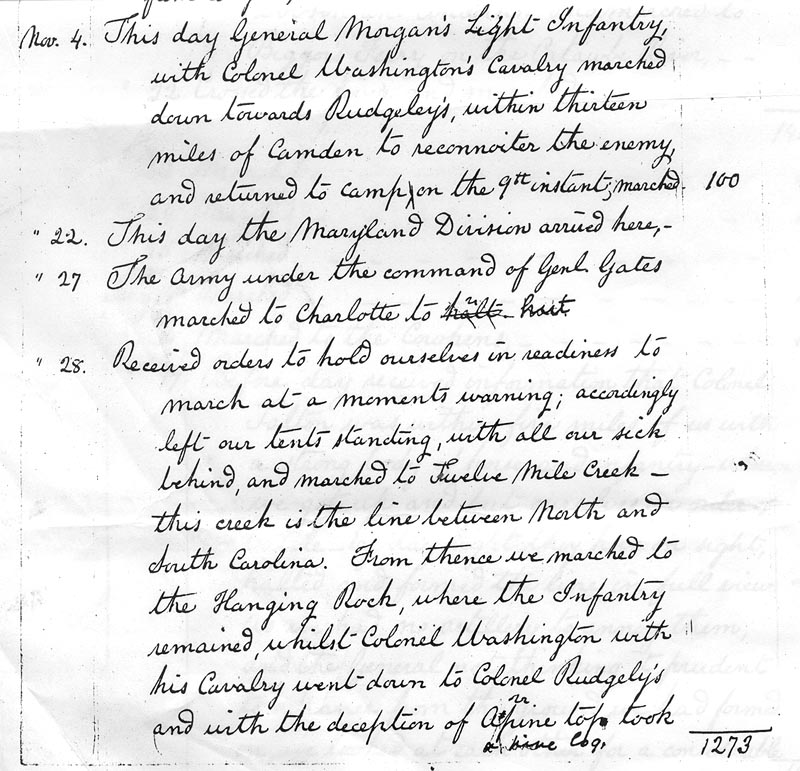 Nov. 4. This day General Morgan's Light Infantry,
with Colonel Washington's Cavalry marched
down towards Rudgeley's, within thirteen
miles of Camden to reconnoiter the enemy,
and returned to camp, on the 9th instant; marched. 100
" 22. This day the Maryland Division arrived here,-
" 27 The army under the command of Genl. Gates
marched to Charlotte to halt- hut
" 28. Received orders to hold ourselves in readiness to
march at a moments warning; accordingly
left our tents standing, with all our sick
behind, and marched to Twelve Mile Creek -
this creek is the line between North and
South Carolina. From thence we marched to
the Hanging Rock, where the Infantry
remained, whilst Colonel Washington with
his Cavalry went down to Colonel Rudgely's
and with the deception of a pine top took
a pine log. 1273